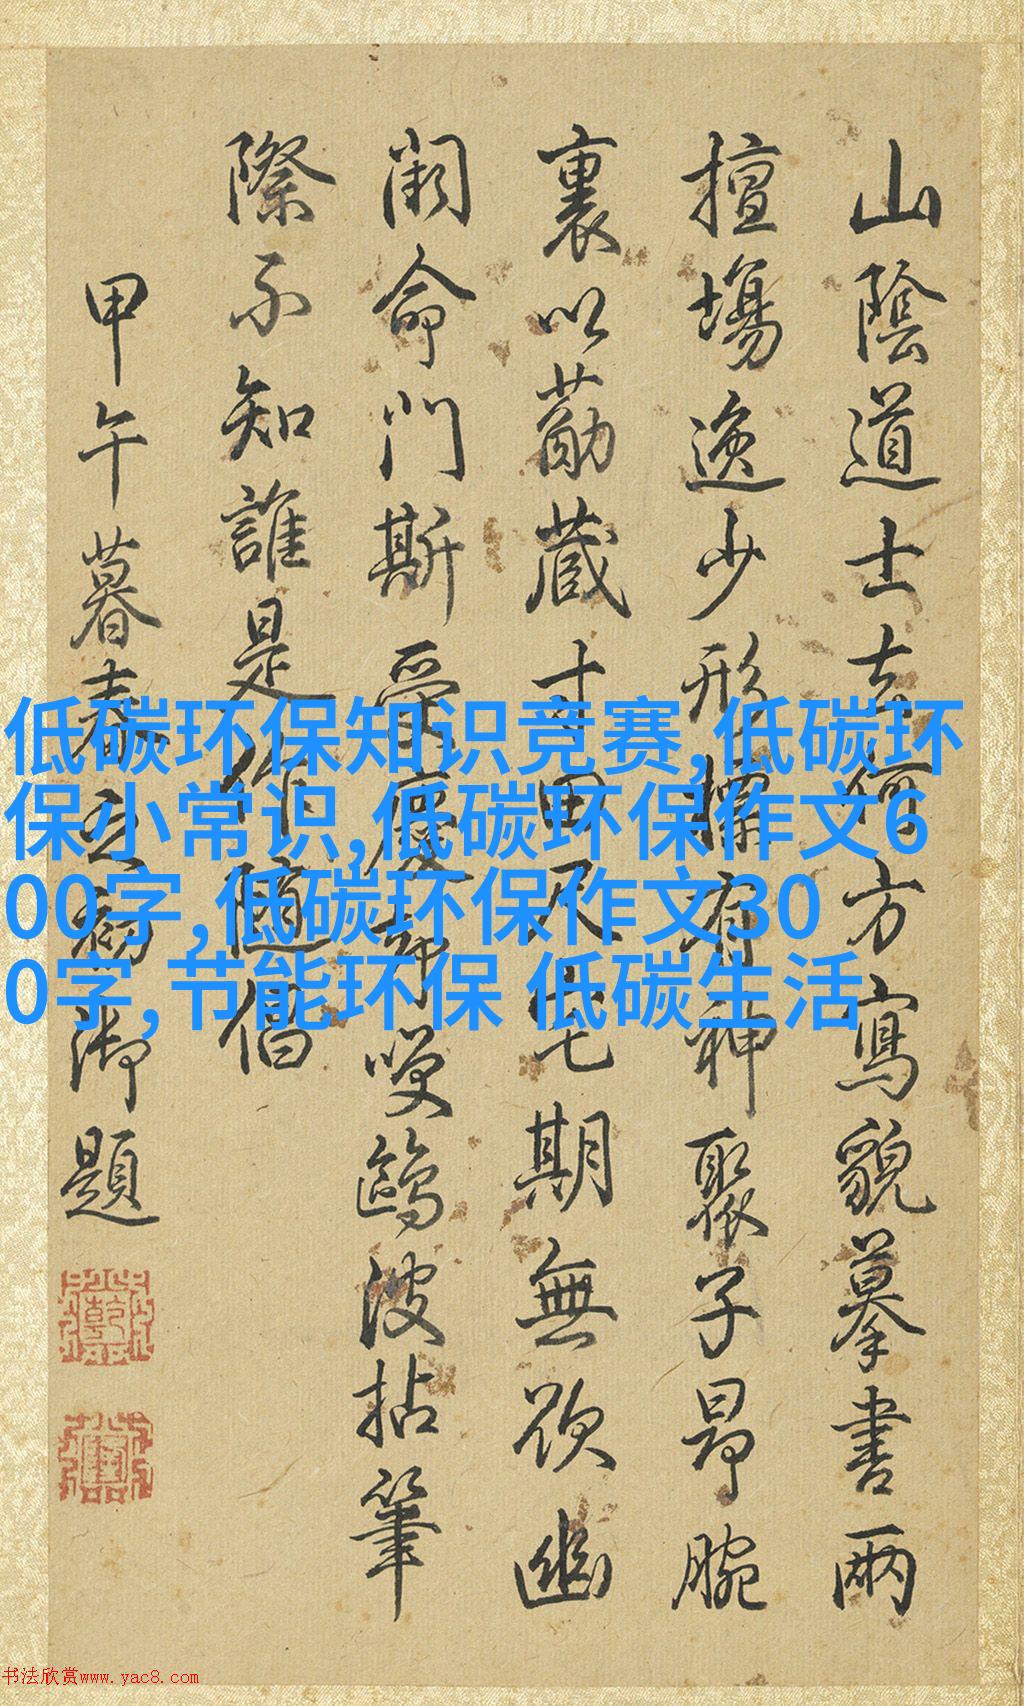 山陰道士去何方寫貌摹書兩
擅塲逸少形有神聚子昂腕
裏以筋藏寸田尺宅期無欲幽
闕命門斯受慶却咲鷗波拈筆
際不知誰是作隨倡
甲午暮春之初御題
低碳环保知识竞赛,低碳环
保小常识,低碳环保作文6
00字,低碳环保作文30
0字,节能环保 低碳生活
书法欣赏www.yac8.com